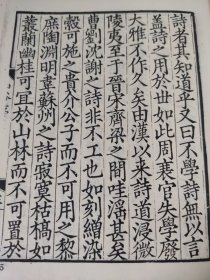 詩者其知道乎又曰不學詩無以言
蓋詩之用於世如此周衰官失學廢
大雅不作久矣由漢以来詩道浸微
陵夷至于晉宋齊梁之間哇淫甚矣
曹劉沈謝之詩非不工也如刻繒染
縠可施之貴介公子而不可用之黎
庶陶淵明韋蘇州之詩寂寞枯槁如
叢蘭幽桂可宜於山林而不可置於